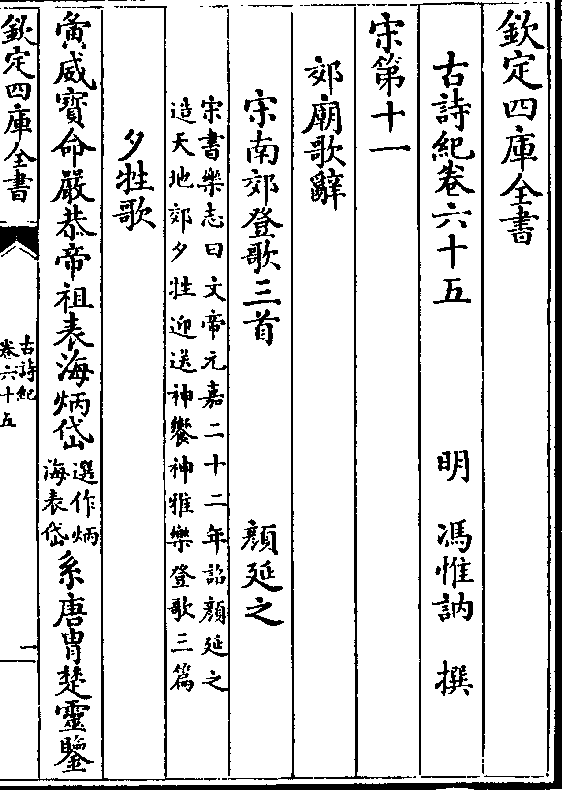 欽定四庫全書
古詩紀卷六十五
明 馮惟訥 撰
宋第十一
郊廟歌辭
宋南郊登歌三首
顔延之
宋書樂志曰文帝元嘉二十二年詔顔延之
造天地郊夕牲迎送神饗神雅樂登歌三篇
夕牲歌
夤威寳命嚴恭帝祖表海炳岱
選作炳
海表岱
系唐胄楚靈鑒
欽定四庫全書
古詩紀
卷六十五
一